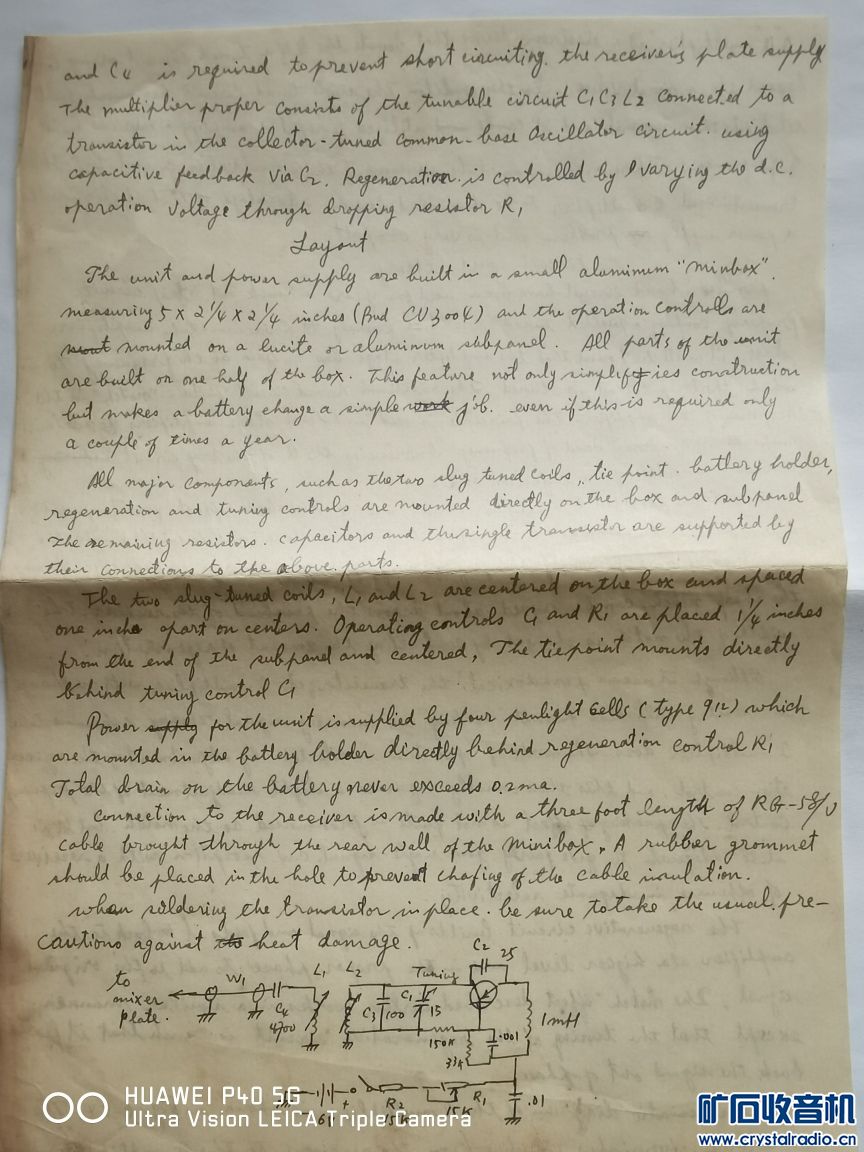 and C4 is required to prevent short circuiting. the receiver's plate supply
The multiplier proper consists of the tunable circuit C1 C3 L2 connected to a
transistor in the collector-tuned common-base Oscillator circuit. using
capacitive feedback via C2. Regeneration is controlled by varying the d.c.
operation voltage through dropping resistor R1
Layout
The unit and power supply are built in a small aluminum "minbox".
measuring 5 x 2 1/4 x 2 1/4 inches (Bud CU3004) and the operation controlls are
mounted on a lucite or aluminum subpanel. All parts of the unit
are built on one half of the box. This feature not only simplifies construction
but makes a battery change a simple job. even if this is required only
a couple of times a year.
All major components, such as the two slug tuned coils, tie point. battery holder,
regeneration and tuning controls are mounted directly on the box and subpanel
The remaining resistors. capacitors and the single transistor are supported by
their connections to the above parts.
The two slug-tuned coils, L1 and L2 are centered on the box and spaced
one inch apart on centers. Operating controls C1 and R1 are placed 1 1/4 inches
from the end of the subpanel and centered, The tiepoint mounts directly
behind tuning control C1
Power for the unit is supplied by four penlight cells (type 912) which
are mounted in the battery holder directly behind regeneration control R1
Total drain on the battery never exceeds 0.2ma.
connection to the receiver is made with a three foot length of RG-58/U
cable brought through the rear wall of the Minibox. A rubber grommet
should be placed in the hole to prevent chafing of the cable insulation.
when soldering the transistor in place. be sure to take the usual pre-
cautions against heat damage.
C2 25
to mixer plate.
W1
C4 4700
L1
L2
C3 100
Tuning
C1 15
150K
33K
.001
1mH
6V
+
R2 15K
R1 15K
.01
HUAWEI P40 5G
Ultra Vision LEICA Triple Camera
矿石收音机
www.crystalradio.cn